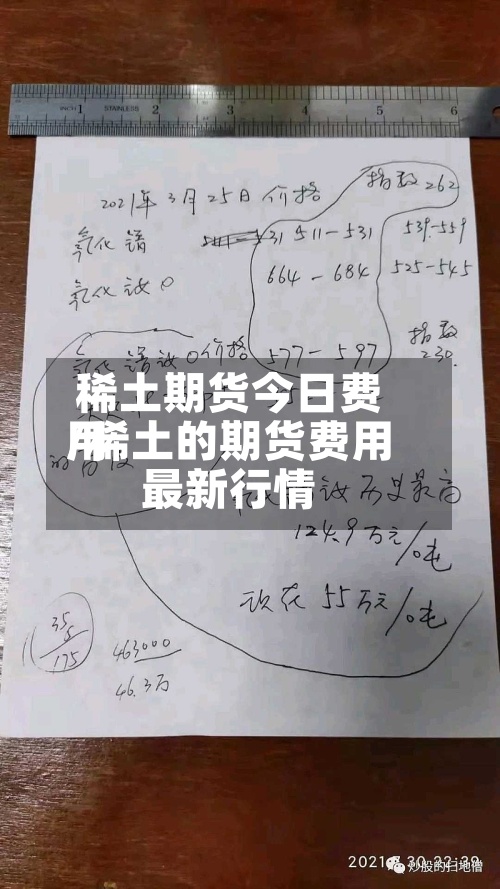 1 2 3 4 5 6
STAINLESS
2021年3月25日价格
指数262
氧化镨
511-531
539-559
氧化钕
664-684
525-545
氧化镨钕 价格
577-597
指数
230.
稀土期货今日费
用,稀土的期货费用
最新行情
钕历史最高
124.9万元/吨
现在55万元/吨
35
5
175
463000
46.3万
2021 30 22:39
炒股的扫地僧